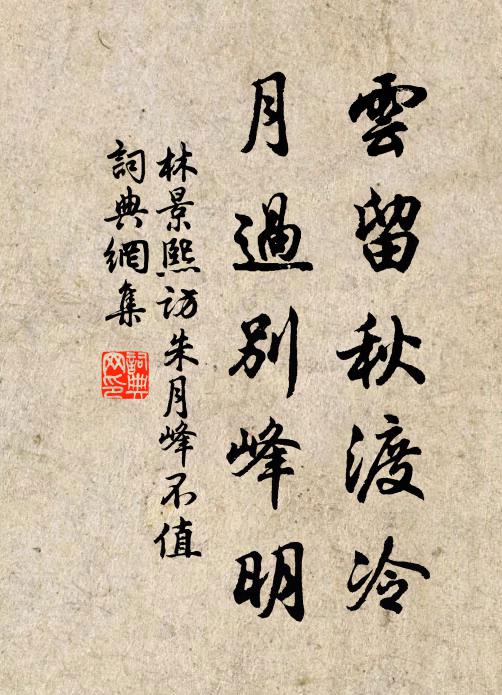 雲留秋渡冷
月過別峰明
林景熙訪朱月峰不值
詞典網集
詞典网印